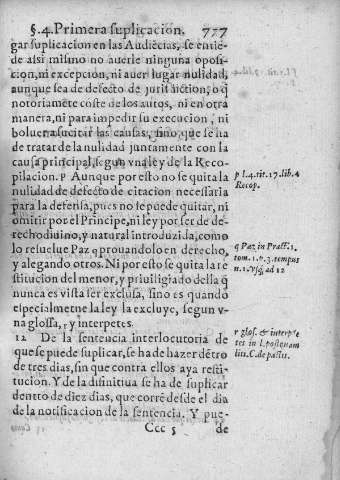 §.4. Primera suplicacion. 777
gar suplicacion en las Audiẽcias, se entiẽ-
de assi mismo no auerle ninguna oposi-
cion, ni excepcion, ni auer lugar nulidad,
aunque sea de defecto de jurisdiction, o q̃
notoriamẽte coste de los autos, ni en otra
manera, ni para impedir su execucion, ni
boluer a suscitar las causas, sino que se ha
de tratar de la nulidad juntamente con la
causa principal, segun vna ley de la Reco-
pilacion. p Aunque por esto no se quita la
nulidad de defecto de citacion necessaria
para la defensa, pues no se puede quitar, ni
omitir por el Principe, ni ley por ser de de-
recho diuino, y natural introduzida, como
lo resuelue Paz q prouandolo en derecho,
y alegando otros. Ni por esto se quita la re-
stitucion del menor, y priuiligiado della q̃
nunca es vista ser exclusa, sino es quando
especialmetne la ley la excluye, segun v-
na glossa, r y interpetes.
12 De la sentencia interlocutoria de
que se puede suplicar, se ha de hazer dẽtro
de tres dias, sin que contra ellos aya resti-
tucion. Y de la difinitiua se ha de suplicar
dentto de diez dias, que corrẽ desde el dia
de la notificacion de la sentencia. Y pue-
Ccc 5 de
p l.4.tit.17.lib.4
Recop.
q Paz in Pract. 1.
tom. 1. p. 3. tempus
n. 1. vsq; ad 12
r glos. & interpre
tes in l. postquam
liti. C. de pactis.